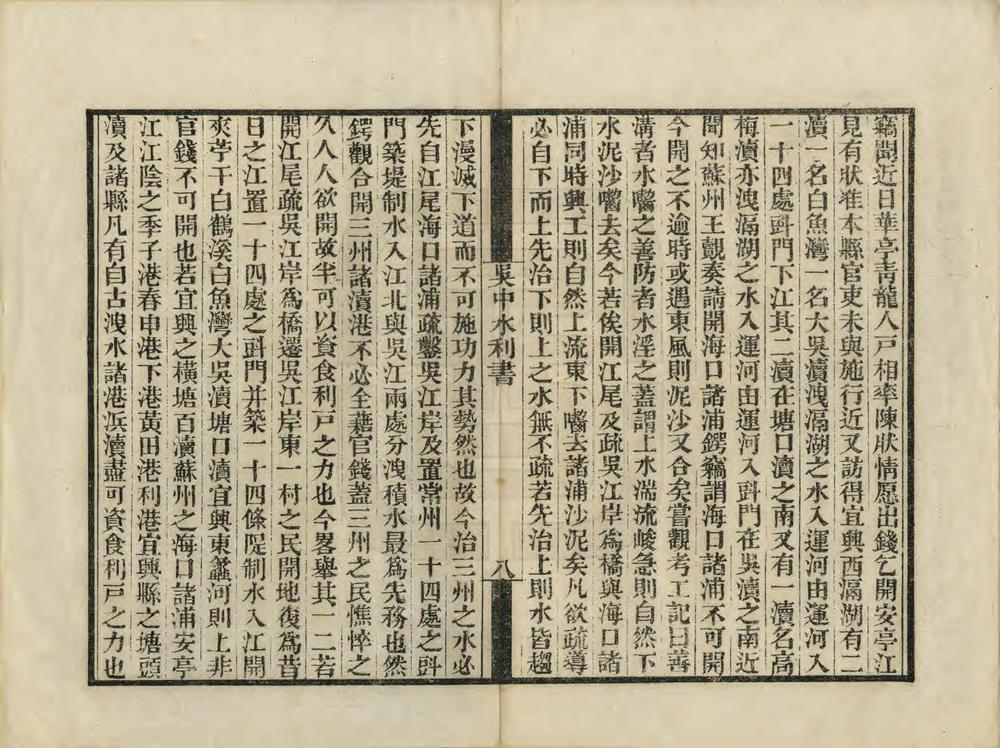 竊聞近日華亭青龍人戸相率陳狀情愿出錢乞開安亭江
見有狀在本縣官吏未與施行近又訪得宜興西滆湖有二
瀆一名白魚灣一名大吳瀆洩滆湖之水入運河由運河入
一十四處㪷門下江其二瀆在塘口瀆之南又有一瀆名高
梅瀆亦洩滆湖之水入運河由運河入㪷門在吳瀆之南近
聞知蘇州王覿奏請開海口諸浦鍔竊謂海口諸浦不可開
今開之不逾時或遇東風則泥沙又合矣嘗觀考工記曰善
溝者水囓之善防者水淫之蓋謂上水湍流峻急則自然下
水泥沙囓去矣今若俟開江尾及疏吳江岸爲橋與海口諸
浦同時興工則自然上流東下囓去諸浦沙泥矣凡欲疏導
必自下而上先治下則上之水無不疏若先治上則水皆趨
吳中水利書
八
下漫滅下道而不可施功力其勢然也故今治三州之水必
先自江尾海口諸浦疏鑿吳江岸及置常州一十四處之㪷
門築堤制水入江北與吳江兩處分洩積水最爲先務也然
鍔觀合開三州諸瀆港不必全藉官錢蓋三州之民憔悴之
久人人欲開故半可以資食利戸之力也今畧舉其一二若
開江尾疏吳江岸爲橋遷吳江岸東一村之民開地復爲昔
日之江置一十四處之㪷門并築一十四條隄制水入江開
夾苧干白鶴溪白魚灣大吳瀆塘口瀆宜興東蠡河則上非
官錢不可開也若宜興之橫塘百瀆蘇州之海口諸浦安亭
江江陰之季子港春申港下港黃田港利港宜興縣之塘頭
瀆及諸縣凡有自古洩水諸港浜瀆盡可資食利戸之力也